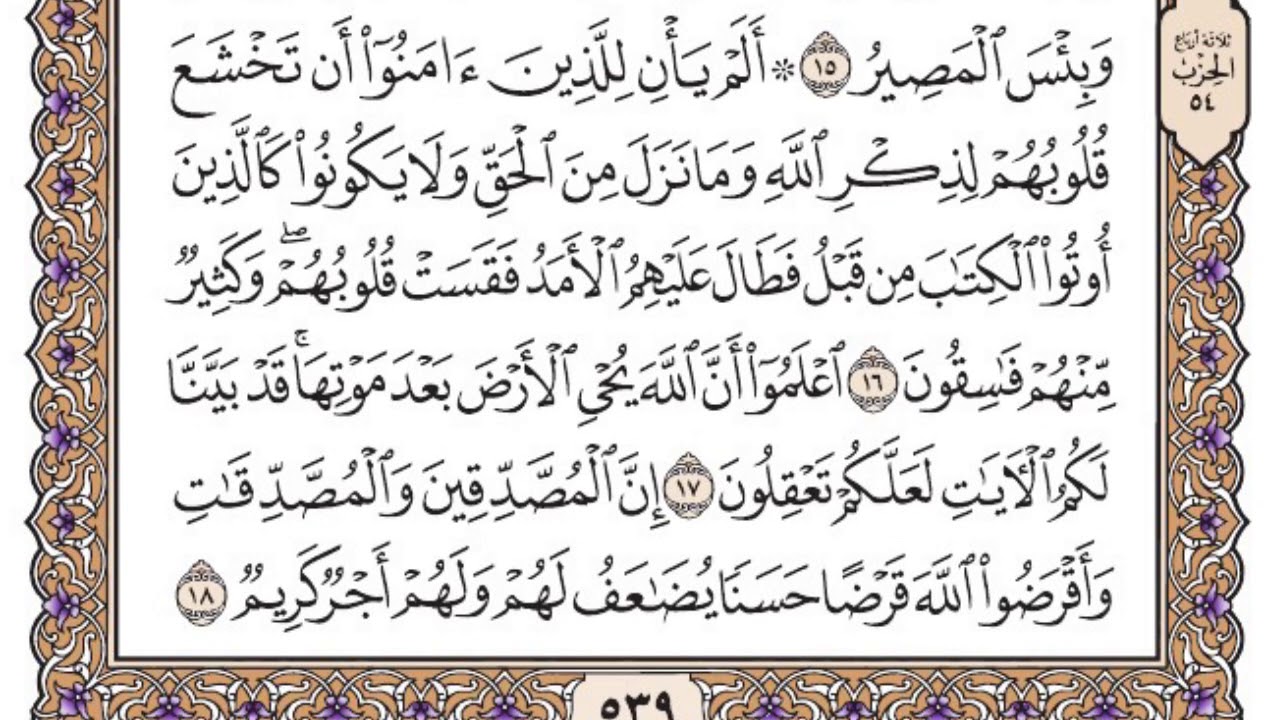 وَبِئْسَ ٱلْمَصِيرُ ١٥ ۞ أَلَمْ يَأْنِ لِلَّذِينَ ءَامَنُوٓا۟ أَن تَخْشَعَ
قُلُوبُهُمْ لِذِكْرِ ٱللَّهِ وَمَا نَزَلَ مِنَ ٱلْحَقِّ وَلَا يَكُونُوا۟ كَٱلَّذِينَ
أُوتُوا۟ ٱلْكِتَٰبَ مِن قَبْلُ فَطَالَ عَلَيْهِمُ ٱلْأَمَدُ فَقَسَتْ قُلُوبُهُمْ ۖ وَكَثِيرٌ
مِّنْهُمْ فَٰسِقُونَ ١٦ ٱعْلَمُوٓا۟ أَنَّ ٱللَّهَ يُحْىِ ٱلْأَرْضَ بَعْدَ مَوْتِهَا ۚ قَدْ بَيَّنَّا
لَكُمُ ٱلْءَايَٰتِ لَعَلَّكُمْ تَعْقِلُونَ ١٧ إِنَّ ٱلْمُصَّدِّقِينَ وَٱلْمُصَّدِّقَٰتِ
وَأَقْرَضُوا۟ ٱللَّهَ قَرْضًا حَسَنًا يُضَٰعَفُ لَهُمْ وَلَهُمْ أَجْرٌ كَرِيمٌ ١٨
ثلاثة أرباع
الحزب
٥٤
٥٣٩